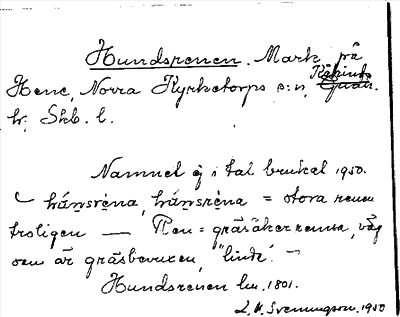 Hundsrenen. Mark på
Hene, Norra Kyrketorps s:n, Kåkinds
hr, Skb. l.
Namnet ej i tal brukat 1950.
hánsrèna, hánsrèna = stora renen
troligen — Ren = gräsåkerrenna, väg
som är gräsbevuxen, "linda". –
Hundsrenen lm. 1801.
L. M. Svenungson. 1950